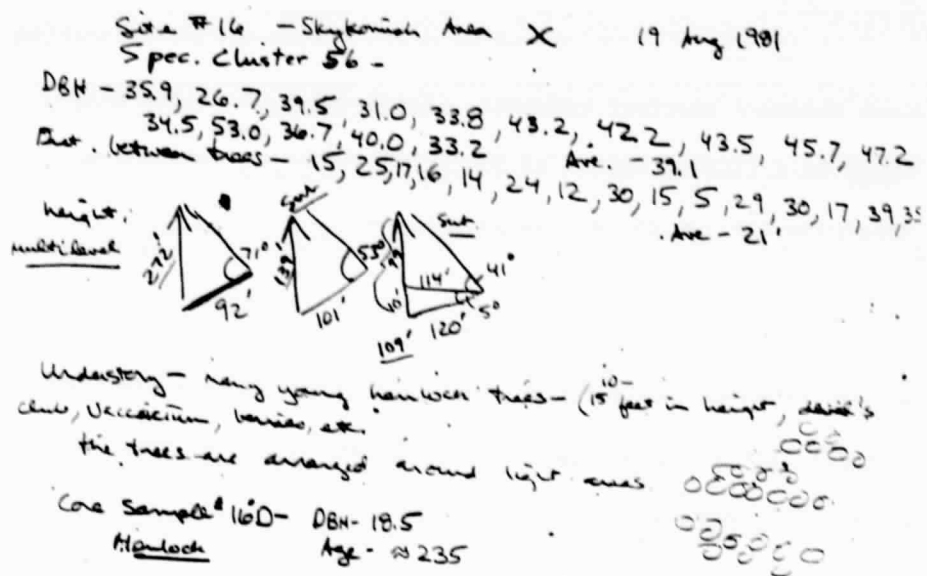 Site #16 - Skykomish Area X 19 Aug 1981
Spec. Cluster 56 -
DBH - 35.9, 26.7, 39.5, 31.0, 33.8, 43.2, 42.2, 43.5, 45.7, 47.2
34.5, 53.0, 36.7, 40.0, 33.2 Ave. - 39.1
Dist. between trees - 15, 25, 17, 16, 14, 24, 12, 30, 15, 5, 29, 30, 17, 39, 35
Ave - 21'
height.
multilevel
272' 71° 92'
139' 101'
99' 10' 114' 41° 5° 120'
109'
Understory - many young hemlock trees - (10-15 feet in height, devil's
club, Vaccinium, berries, etc.
the trees are arranged around light areas
Core Sample # 16D - DBH - 18.5
Hemlock Age - ≈ 235